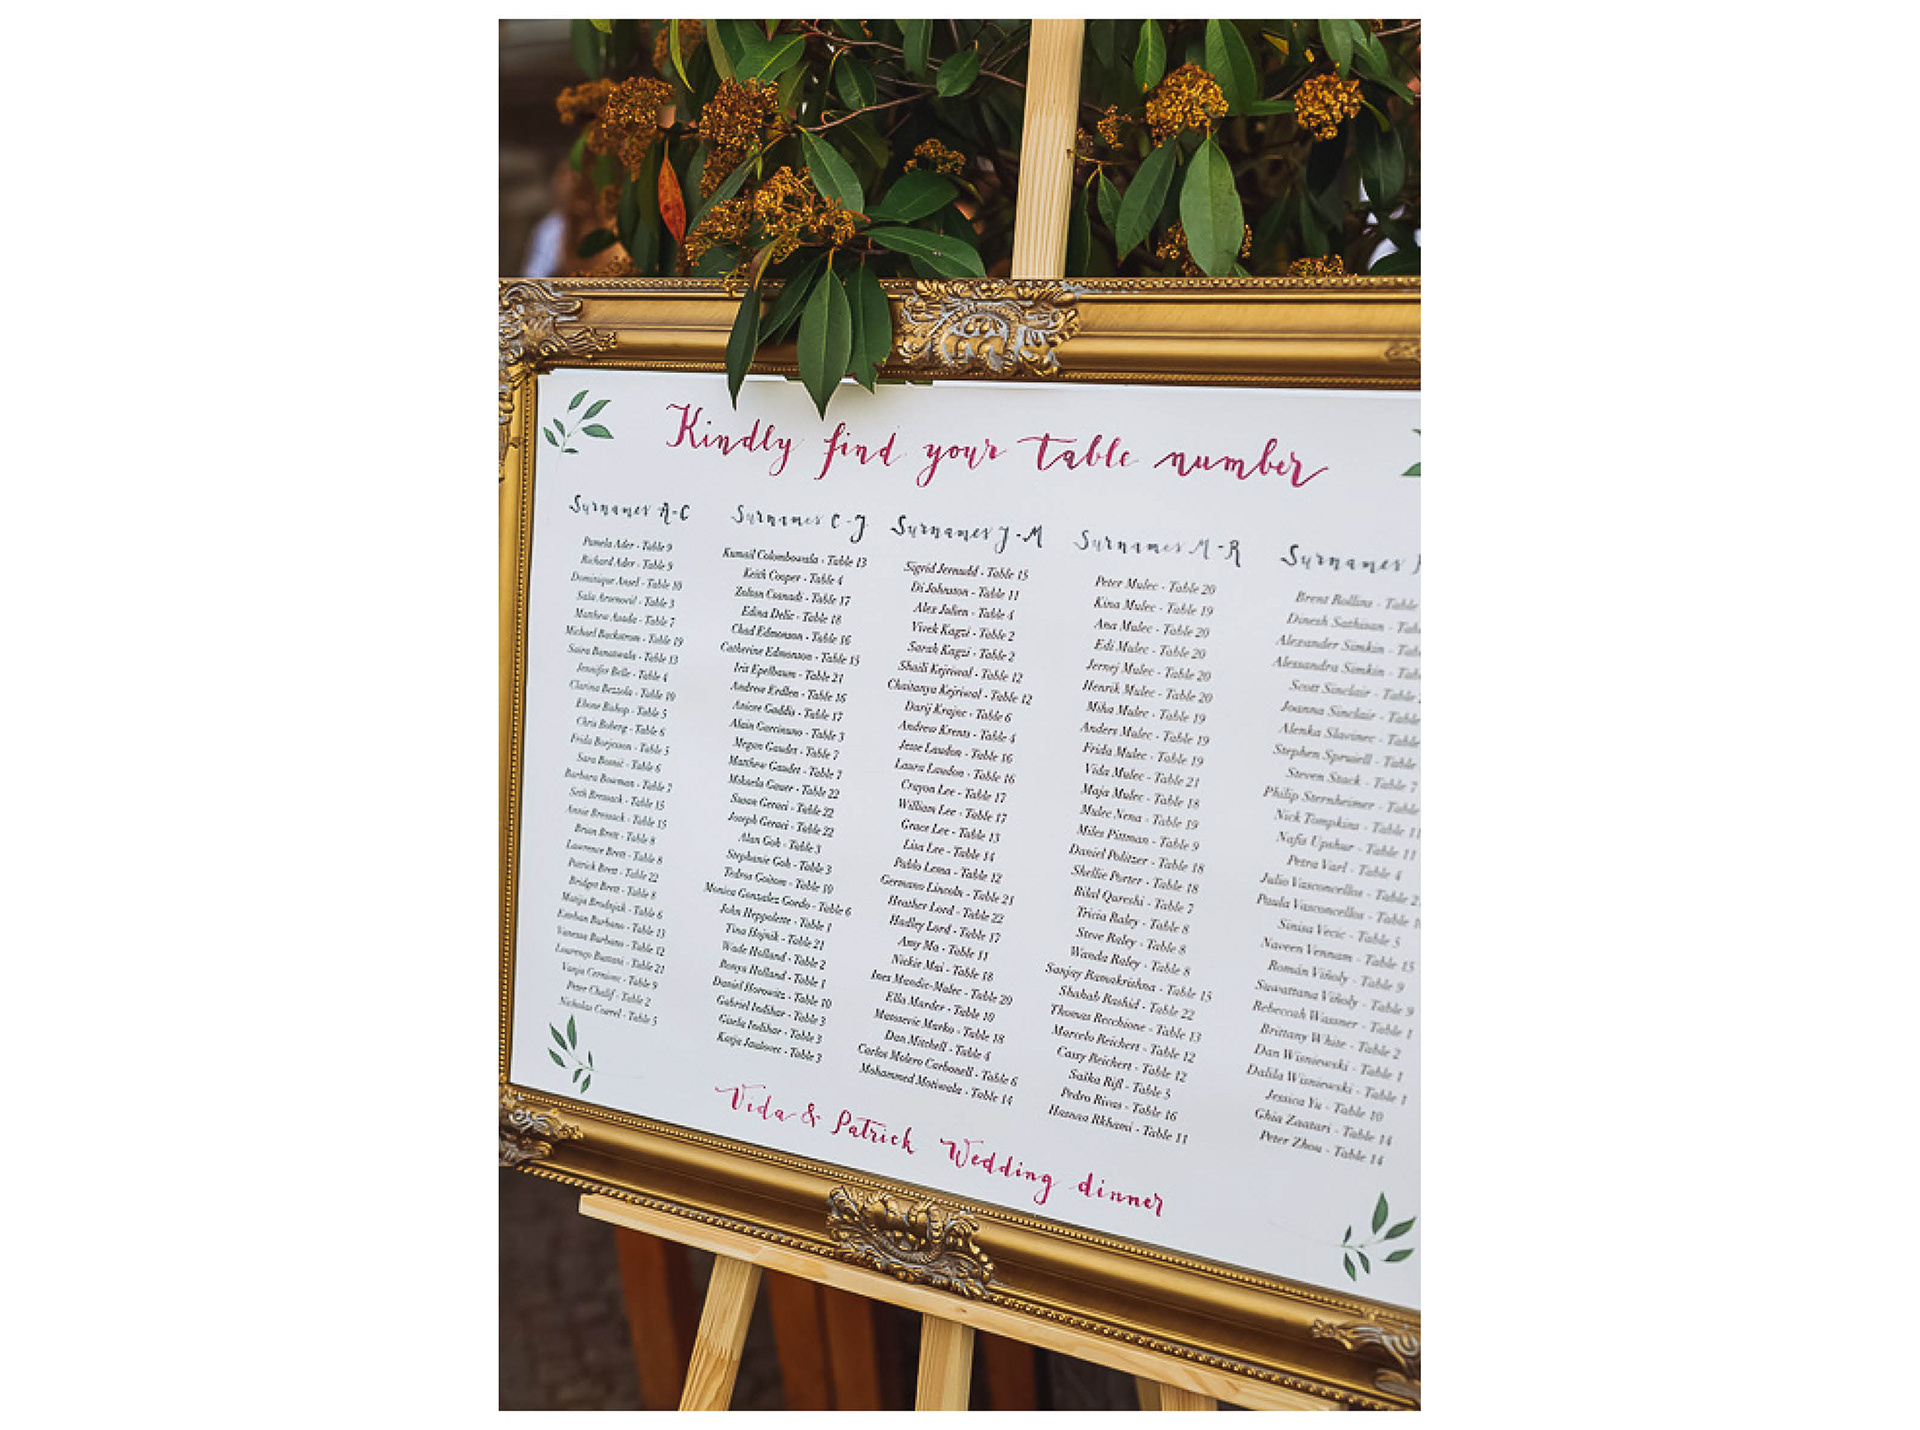 Kindly find your table number
Surnames A-C
Pamela Ader - Table 9
Richard Ader - Table 9
Dominique Ansel - Table 10
Saša Arsenovič - Table 3
Matthew Asada - Table 7
Michael Backstrom - Table 19
Saira Banatwala - Table 13
Jennifer Belle - Table 4
Clarina Bezzola - Table 10
Ebone Bishop - Table 5
Chris Boberg - Table 6
Frida Borjesson - Table 5
Sara Bosnič - Table 6
Barbara Bowman - Table 7
Seth Bressack - Table 15
Annie Bressack - Table 15
Brian Brett - Table 8
Lawrence Brett - Table 8
Patrick Brett - Table 22
Bridget Brett - Table 8
Matija Brodnjak - Table 6
Esteban Burbano - Table 13
Vanessa Burbano - Table 12
Lourenço Bustani - Table 21
Vanja - Table 9
Peter Chalif - Table 2
Nicholas Correl - Table 5
Surnames C-J
Kumail Colombowala - Table 13
Keith Cooper - Table 4
Zoltan Csanadi - Table 17
Edina Delic - Table 18
Chad Edmonson - Table 16
Catherine Edmonson - Table 15
Irit Epelbaum - Table 21
Andrew Erdlen - Table 16
Anicee Gaddis - Table 17
Alain Garcinuno - Table 3
Megan Gaudet - Table 7
Matthew Gaudet - Table 7
Mikaela Gauer - Table 22
Susan Geraci - Table 22
Joseph Geraci - Table 22
Alan Goh - Table 3
Stephanie Goh - Table 3
Tedros Goitom - Table 10
Monica Gonzalez Gordo - Table 6
John Heppolette - Table 1
Tina Hojnik - Table 21
Wade Holland - Table 2
Ronya Holland - Table 1
Daniel Horowitz - Table 10
Gabriel Indihar - Table 3
Gisela Indihar - Table 3
Katja Jaulovec - Table 3
Surnames J-M
Sigrid Jernudd - Table 15
Di Johnston - Table 11
Alex Julien - Table 4
Vivek Kagzi - Table 2
Sarah Kagzi - Table 2
Shaili Kejriwal - Table 12
Chaitanya Kejriwal - Table 12
Darij Krajnc - Table 6
Andrew Krents - Table 4
Jesse Laudon - Table 16
Laura Laudon - Table 16
Crayon Lee - Table 17
William Lee - Table 17
Grace Lee - Table 13
Lisa Lee - Table 14
Pablo Lema - Table 12
Germano Lincoln - Table 21
Heather Lord - Table 22
Hadley Lord - Table 17
Amy Ma - Table 11
Nickie Mai - Table 18
Ines Mandic-Malec - Table 20
Ella Marder - Table 10
Matosevic Marko - Table 18
Dan Mitchell - Table 4
Carlos Molero Carbonell - Table 6
Mohammed Motiwala - Table 14
Surnames M-R
Peter Mulec - Table 20
Kina Mulec - Table 19
Ana Mulec - Table 20
Edi Mulec - Table 20
Jernej Mulec - Table 20
Henrik Mulec - Table 20
Miha Mulec - Table 19
Anders Mulec - Table 19
Frida Mulec - Table 19
Vida Mulec - Table 21
Maja Mulec - Table 18
Mulec Nena - Table 19
Miles Pittman - Table 9
Daniel Politzer - Table 18
Shellie Porter - Table 18
Bilal Qureshi - Table 7
Tricia Raley - Table 8
Steve Raley - Table 8
Wanda Raley - Table 8
Sanjay Ramakrishna - Table 15
Shahab Rashid - Table 22
Thomas Recchione - Table 13
Marcelo Reichert - Table 12
Cassy Reichert - Table 12
Saška Rifl - Table 5
Pedro Rivas - Table 16
Hasnaa Rkhami - Table 11
Surnames
Brent Rollins - Table
Dinesh Sathisan - Tab
Alexander Simkin - Tab
Alessandra Simkin - Tab
Scott Sinclair - Table
Joanna Sinclair - Table
Alenka Slavinec - Table
Stephen Spruiell - Table
Steven Stack - Table 7
Philip Sternheimer - Table
Nick Tompkins - Table 11
Nafis Upshur - Table 11
Petra Varl - Table 4
Julio Vasconcellos - Table 2
Paula Vasconcellos - Table 1
Sinisa Vecic - Table 5
Naveen Vennam - Table 15
Román Viñoly - Table 9
Suwattana Viñoly - Table 9
Rebeccah Wassner - Table 1
Brittany White - Table 2
Dan Wisniewski - Table 1
Dalila Wisniewski - Table 1
Jessica Yu - Table 10
Ghia Zaatari - Table 14
Peter Zhou - Table 14
Vida & Patrick Wedding dinner